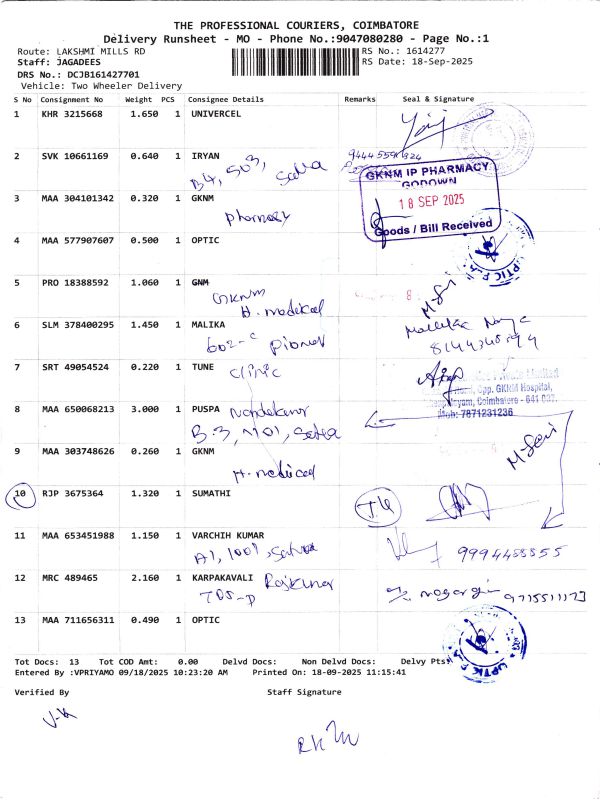 THE PROFESSIONAL COURIERS, COIMBATORE
Delivery Runsheet - MO - Phone No.:9047080280 - Page No.:1
Route: LAKSHMI MILLS RD
RS No.: 1614277
Staff: JAGADEES
RS Date: 18-Sep-2025
DRS No.: DCJB161427701
Vehicle: Two Wheeler Delivery
S No Consignment No Weight PCS Consignee Details Remarks Seal & Signature
1 KHR 3215668 1.650 1 UNIVERCEL
2 SVK 10661169 0.640 1 IRYAN
B4, 503,
GKNM IP PHARMACY
GODOWN
18 SEP 2025
Goods / Bill Received
3 MAA 304101342 0.320 1 GKNM
pharmacy
4 MAA 577907607 0.500 1 OPTIC
5 PRO 18388592 1.060 1 GNM
GKNM
H. medical
6 SLM 378400295 1.450 1 MALIKA
602-C
7 SRT 49054524 0.220 1 TUNE
clinic
Opp. GKNM Hospital,
Coimbatore - 641 037.
Mob: 7871231236
8 MAA 650068213 3.000 1 PUSPA
9 MAA 303748626 0.260 1 GKNM
H. medical
10 RJP 3675364 1.320 1 SUMATHI
11 MAA 653451988 1.150 1 VARCHIH KUMAR
A1, 1001,
9994488855
12 MRC 489465 2.160 1 KARPAKAVALI Rajkumar
13 MAA 711656311 0.490 1 OPTIC
OPTIC
Tot Docs: 13 Tot COD Amt: 0.00 Delvd Docs: Non Delvd Docs: Delvy Pts%
Entered By :VPRIYAMO 09/18/2025 10:23:20 AM Printed On: 18-09-2025 11:15:41
Verified By Staff Signature